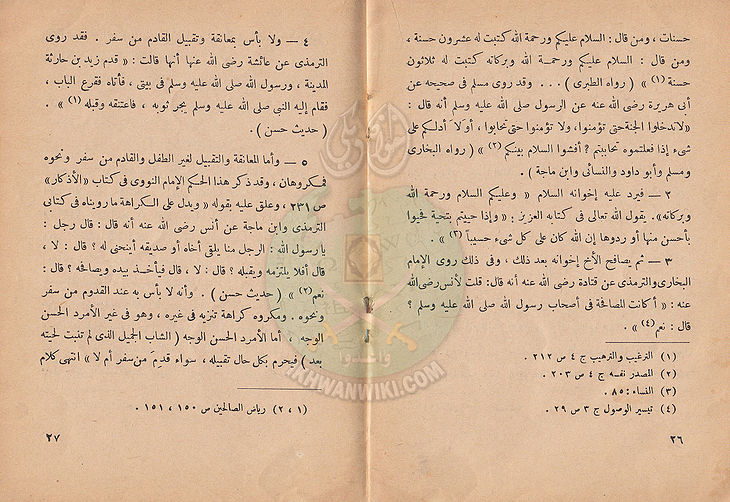 حسنات ، ومن قال : السلام عليكم ورحمة الله كتبت له عشرون حسنة ،
ومن قال : السلام عليكم ورحمــة الله وبركاته كتبت له ثلاثون
حسنة (١) » ( رواه الطبرى ) . . . وقد روى مسلم فى صحيحه عن
أبى هريرة رضى الله عنه عن الرسول صلى الله عليه وسلم أنه قال :
«لاتدخلوا الجنة حتى تؤمنوا، ولا تؤمنوا حتى تحابوا ، أوَلا أدلكم على
شىء إذا فعلتموه تحاببتم ؟ أفشوا السلام بينكم (٢) » ( رواه البخارى
ومسلم وأبو داود والنسائى وابن ماجة ) .
٢ — فيرد عليه إخوانه السلام « وعليكم السلام ورحمة الله
وبركاته». يقول الله تعالى فى كتابه العزيز : « وإذا حييتم بتحية فحيوا
بأحسن منها أو ردوها إن الله كان على كل شىء حسيباً (٣) » .
٣ — ثم يصافح الأخ إخوانه بعد ذلك ، وفى ذلك روى الإمام
البخارى والترمذى عن قتادة رضى الله عنه أنه قال: قلت لأنس رضى الله
عنه : « أكانت المصافحة فى أصحاب رسول الله صلى الله عليه وسلم ؟
قال : نعم (٤) » .
(١) الترغيب والترهيب ج ٤ ص ٢١٢ .
(٢) المصدر نفسه ج ٤ ص ٢٠٣ .
(٣) النساء : ٨٥ .
(٤) تيسير الوصول ج ٣ ص ٢٩ .
٢٦
٤ — ولا بأس بمعانقة وتقبيل القادم من سفر . فقد روى
الترمذى عن عائشة رضى الله عنها أنها قالت : « قدم زيد بن حارثة
المدينة ، ورسول الله صلى الله عليه وسلم فى بيتى ، فأتاه فقرع الباب ،
فقام إليه النبى صلى الله عليه وسلم يجر ثوبه ، فاعتنقه وقبله (١) » .
( حديث حسن ) .
٥ — وأما المعانقة والتقبيل لغير الطفل والقادم من سفر ونحوه
فمكروهان ، وقد ذكر هذا الحكم الإمام النووى فى كتاب «الأذكار»
ص ٢٣١ ، وعلق عليه بقوله «ويدل على الكراهة ما رويناه فى كتابى
الترمذى وابن ماجة عن أنس رضى الله عنه أنه قال : قال رجل :
يا رسول الله : الرجل منا يلقى أخاه أو صديقه أينحنى له ؟ قال : لا ،
قال أفلا يلتزمه ويقبله ؟ قال : لا ، قال فيأخــذ بيده ويصافحه ؟ قال :
نعم (٢) » ( حديث حسن ) . وأنه لا بأس به عند القدوم من سفر
ونحوه . ومكروه كراهة تنزيه فى غيره ، وهو فى غير الأمرد الحسن
الوجه ، أما الأمرد الحسن الوجه ( الشاب الجميل الذى لم تنبت لحيته
بعد ) فيحرم بكل حال تقبيله ، سواء قدِمَ من سفر أم لا » انتهى كلام
(١ ، ٢) رياض الصالحين ص ١٥٠ ، ١٥١ .
٢٧
وأعدوا
IKHWANWIKI.COM